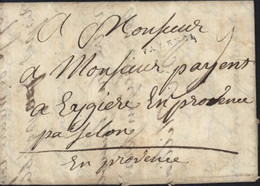 A Monsieur
a Monsieur payent
a Eygiere En provence
par Selon
En provence